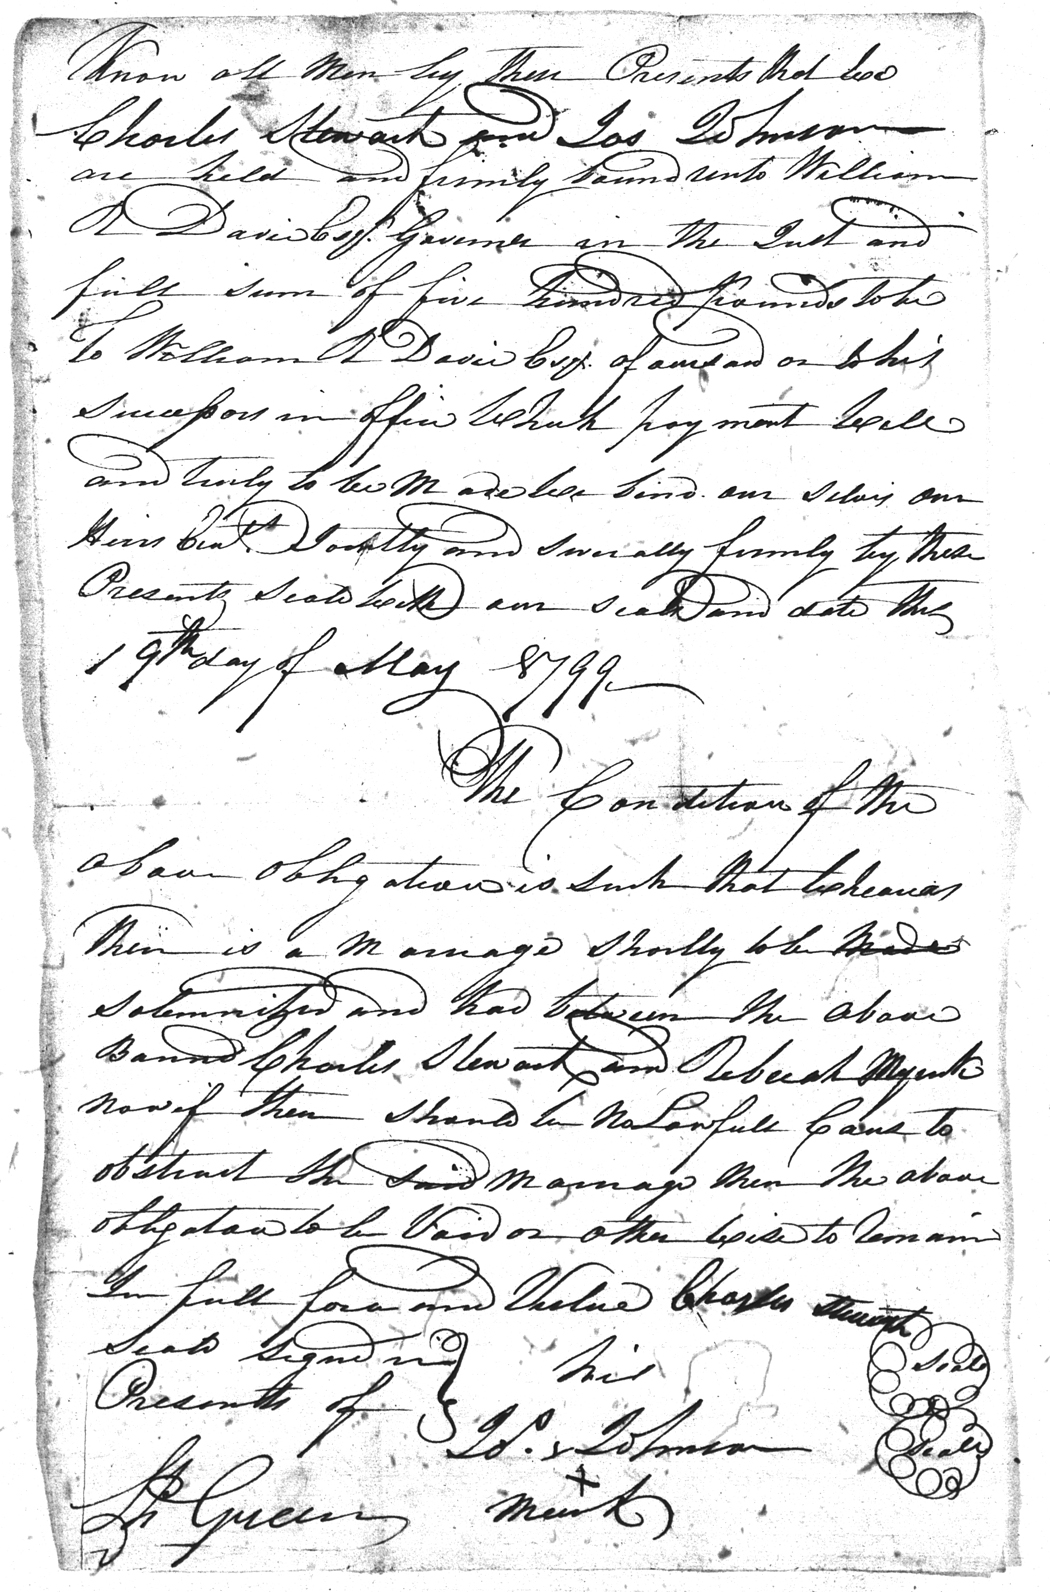 Know all Men by these Presents that We
Charles Stewart and Jos Johnson
are held and firmly bound unto William
R Davie Esqr. Governer in the Just and
full sum of five hundred pounds to be
to William R Davie Esqr. afoursaid or to his
Successors in office Which payment Well
and truly to be Made We bind our selves our
Heirs Joently and severally firmly by these
Presents Seald With our seals and date this
19th day of May 1799
The Condition of the
above obligation is such that Wheareas
their is a Marriage shortly to be Made
solemnized and had between the above
Bound Charles Stewart and Rebecah
now if there should be No Lawfull Caus to
obstruct the said Marriage then the above
obligation to be Void or other Wise to Remain
In full force and Vertue Charles Stewart
Seald signd in Seale
Presents of his
Jos. Johnson Seale
Green Mark